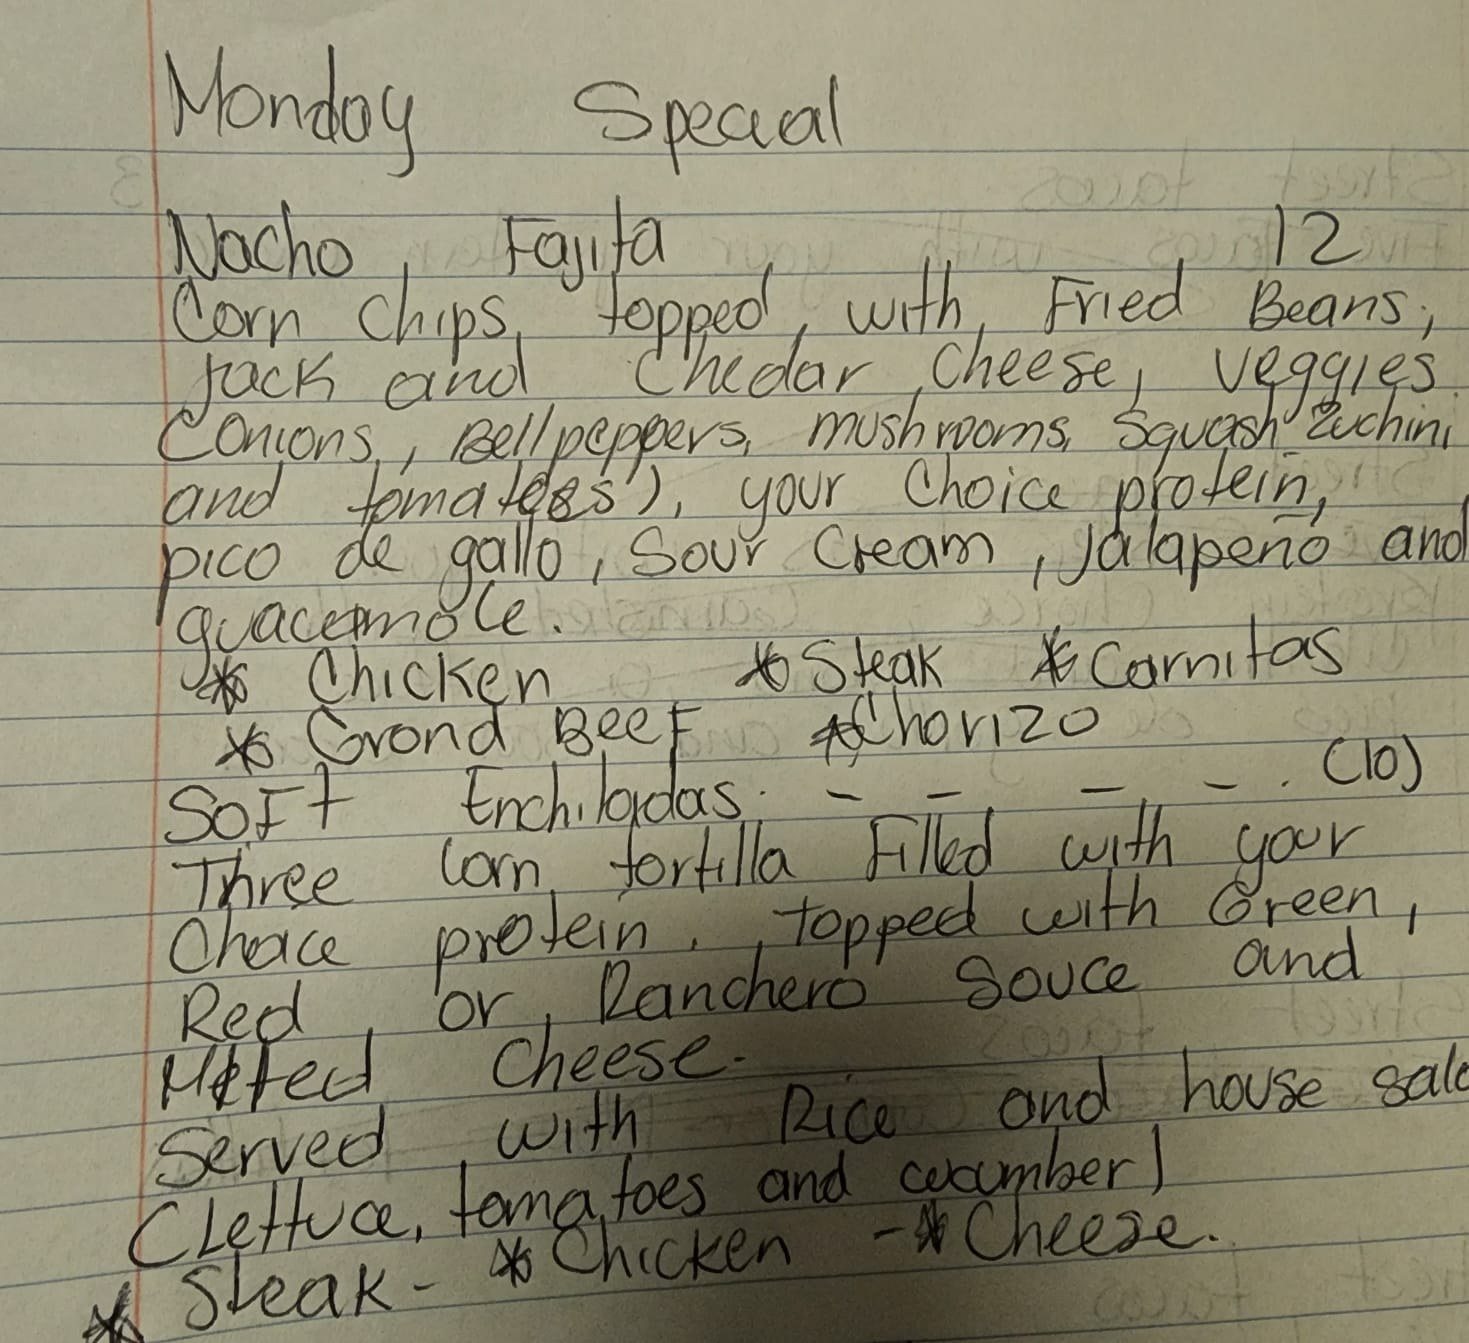 Monday Special
Nacho Fajita 12
Corn Chips, topped, with, Fried Beans,
Jack and Chedar, Cheese, veggies
(Onions, Bellpeppers, mushrooms, Squash Zuchini
and tomatoes), your Choice protein,
pico de gallo, Sour Cream, Jalapeño and
guacemole.
* Chicken * Steak * Carnitas
* Grond Beef * Chorizo
Soft Enchiladas. - - - - . (10)
Three Corn tortilla Filled with your
Choace protein, topped with Green,
Red, or, Ranchero Souce and
Melted Cheese.
Served, with Rice and house sala
(Lettuce, tomatoes and cucumber)
* Steak - * Chicken - * Cheese.